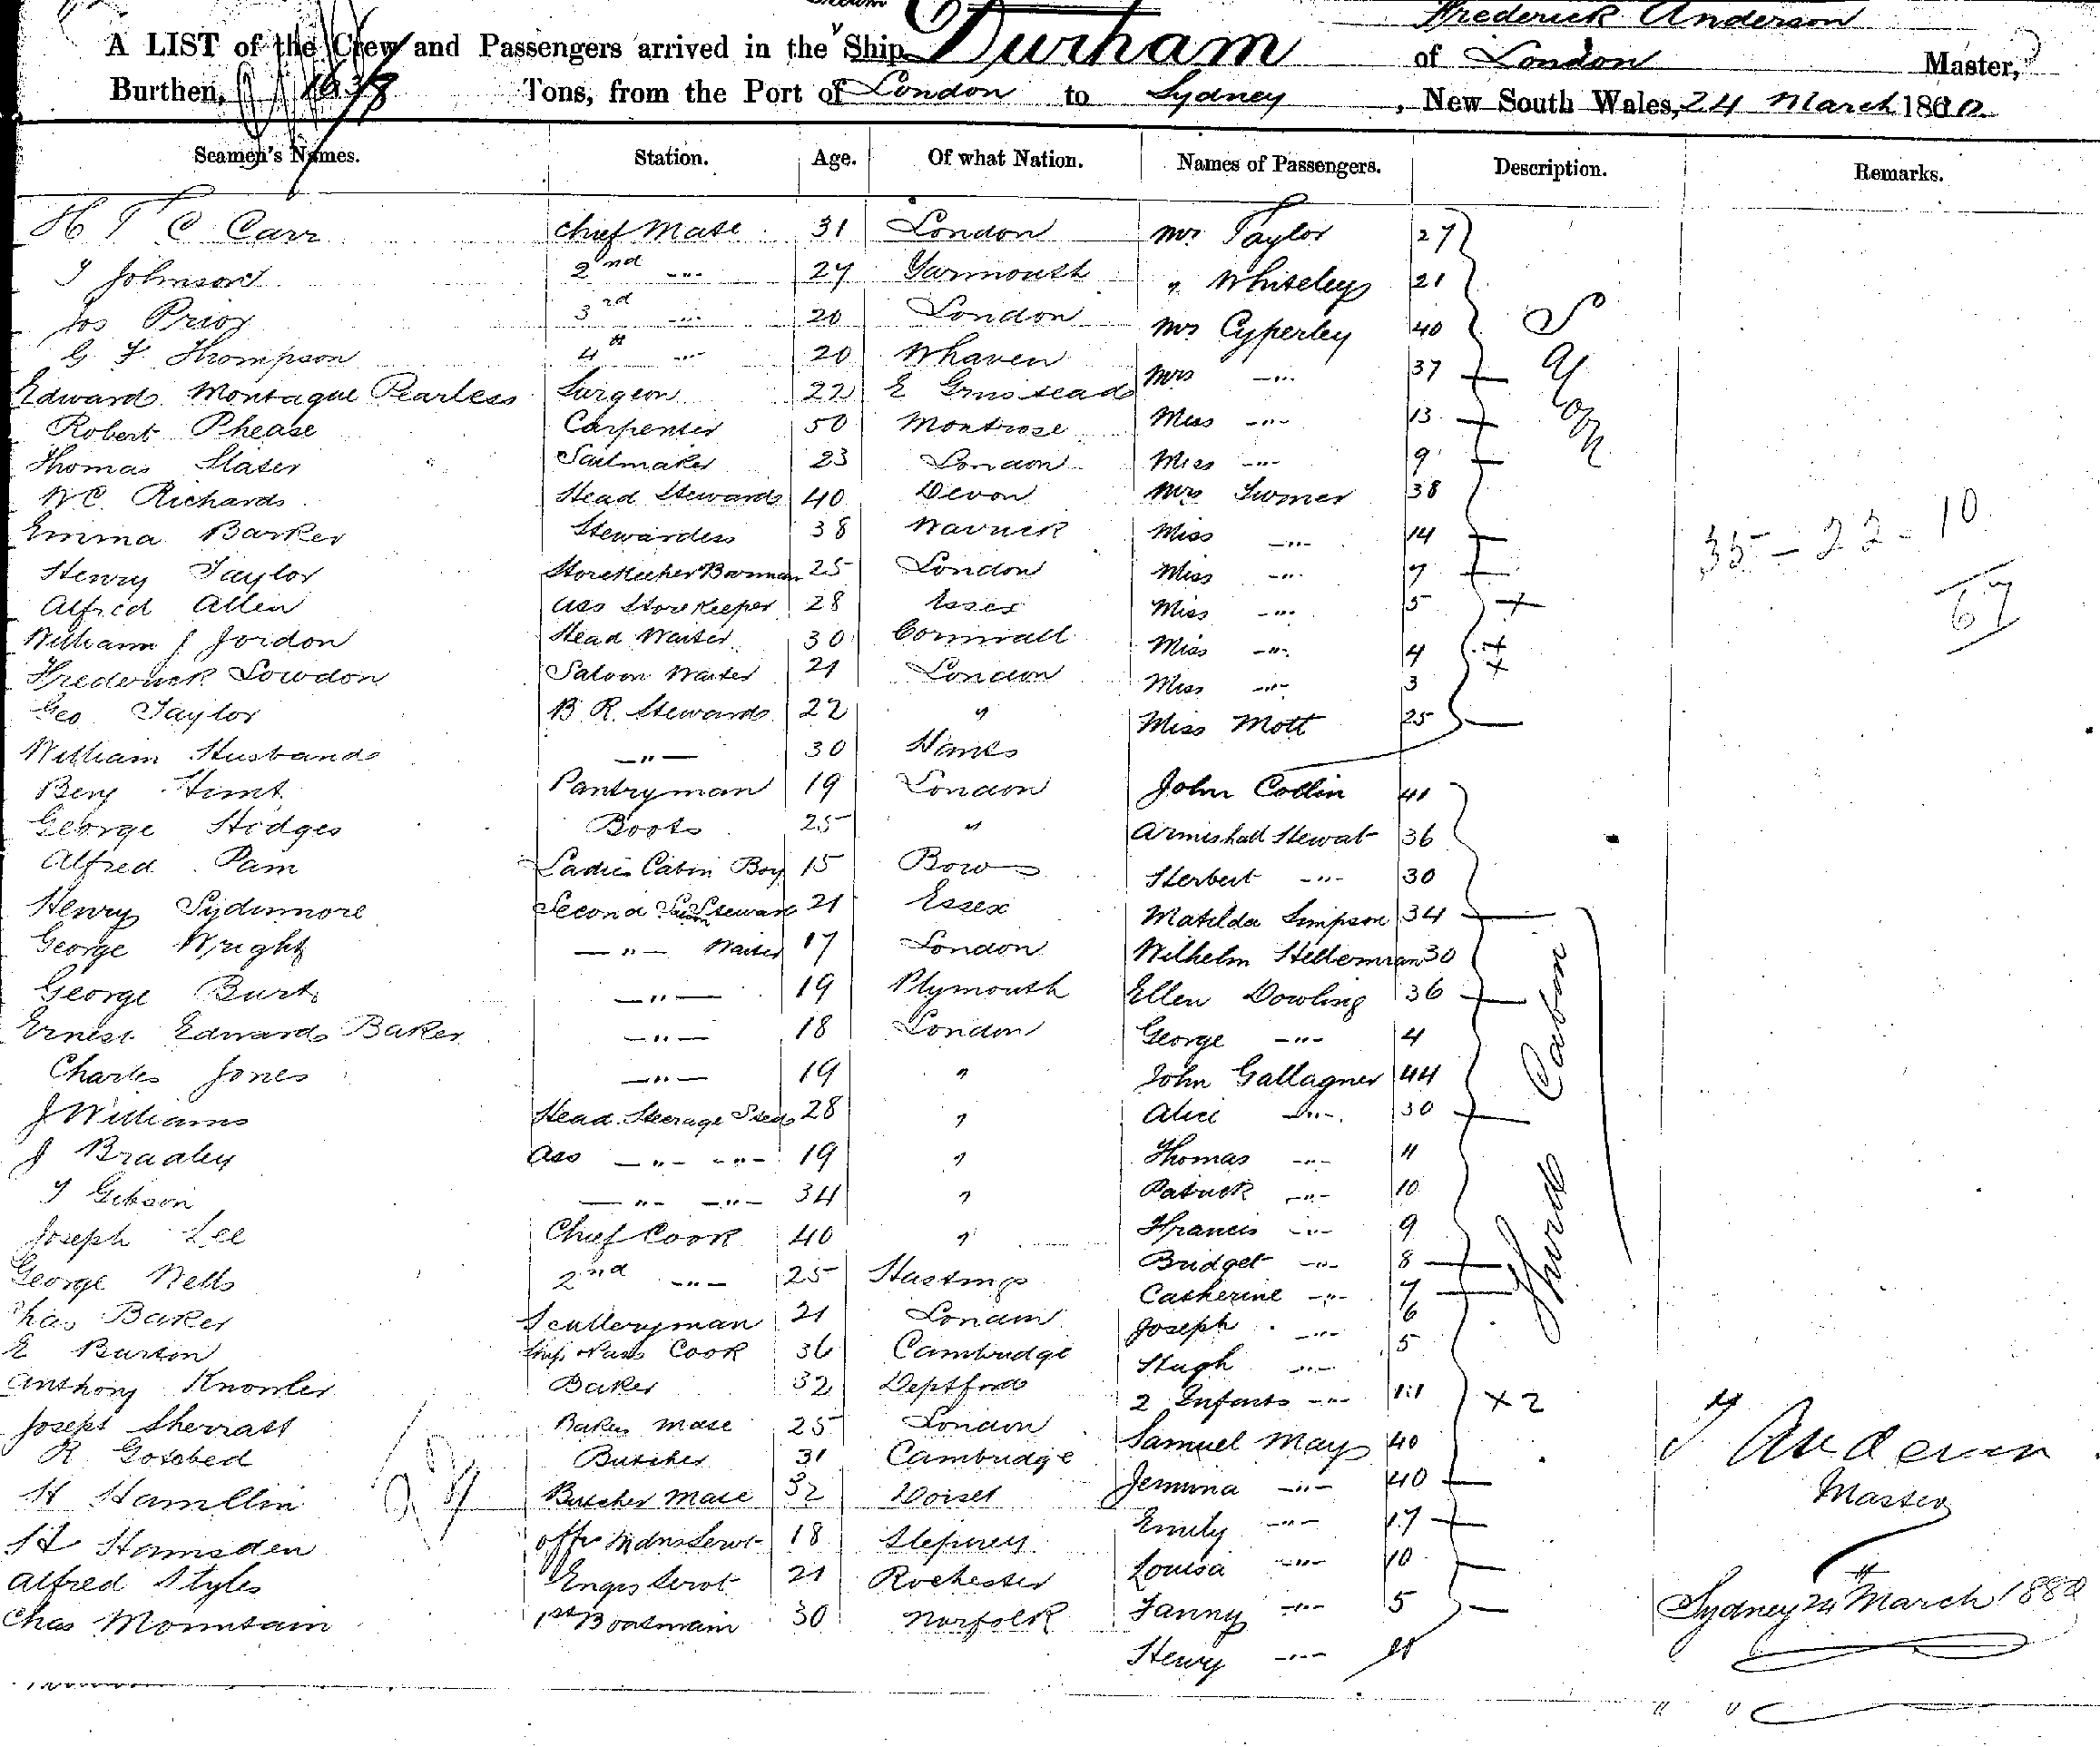 Frederick Anderson
A LIST of the Crew and Passengers arrived in the Ship Durham of London Master,
Burthen, Tons, from the Port of London to Sydney, New South Wales, 24 March 1880
Seamen's Names. Station. Age. Of what Nation. Names of Passengers. Description. Remarks.
H T C Carr Chief Mate 31 London Mr Taylor 27
J Johnson 2nd -"- 27 Yarmouth " Whiteley 21
Jos Prior 3rd -"- 20 London Mr Cyperley 40
G F Thompson 4th -"- 20 Whaven Mrs -"- 37
Saloon
Edward Montague Pearless Surgeon 22 E Grinstead Miss -"- 13
Robert Phease Carpenter 50 Montrose Miss -"- 9
Thomas Slater Sailmaker 23 London Mrs 38
W C Richards Head Steward 40 Devon Miss -"- 14
Emma Barker Stewardess 38 Warwick Miss -"- 7
Henry Taylor Storekeeper Barman 25 London Miss -"- 5
Alfred Allen Ass Storekeeper 28 Essex Miss -"- 4
William J Jordon Head Waiter 30 Cornwall Miss -"- 3
Frederick Lowdon Saloon Waiter 21 London Miss Mott 25
Geo Taylor B. R. Steward 22 "
William Husband -"- 30 Hants
Benj Hunt Pantryman 19 London John Collin 41
George Hodges Boots 25 " Armishall Stewat 36
Alfred Pam Ladies Cabin Boy 15 Bow Herbert -"- 30
Henry Sydenmore Second Saloon Steward 21 Essex Matilda Simpson 34
George Wright -"- Waiter 17 London Wilhelm Hellerman 30
George Burt -"- 19 Plymouth Ellen Dowling 36
Ernest Edward Baker -"- 18 London George -"- 4
Charles Jones -"- 19 " John Gallagher 44
J Williams Head Steerage Sted 28 " Alice -"- 30
J Bradley Ass -"- -"- 19 " Thomas -"- 11
T Gibson -"- -"- 34 " Patrick -"- 10
Joseph Lee Chief Cook 40 " Francis -"- 9
George Wells 2nd -"- 25 Hastings Bridget -"- 8
Third Cabin
Chas Baker Sculleryman 21 London Catherine -"- 7
E Burton Ships Pass Cook 36 Cambridge Joseph -"- 6
Anthony Knowler Baker 32 Deptford Hugh -"- 5
Joseph Sherratt Bakers Mate 25 London 2 Infants -"- 1:1 x 2
R Gotobed Butcher 31 Cambridge Samuel May 40
H Hamllin Butcher Mate 32 Dorset Jemima -"- 40
H Hamsden 18 Stepney Emily -"- 17
Alfred Styles Engrs Servt 21 Rochester Louisa -"- 10
Chas Mountain 1st Boatswain 30 Norfolk Fanny -"- 5
Henry -"-
35 - 22 - 10
67
F Anderson
Master
Sydney 24th March 1880